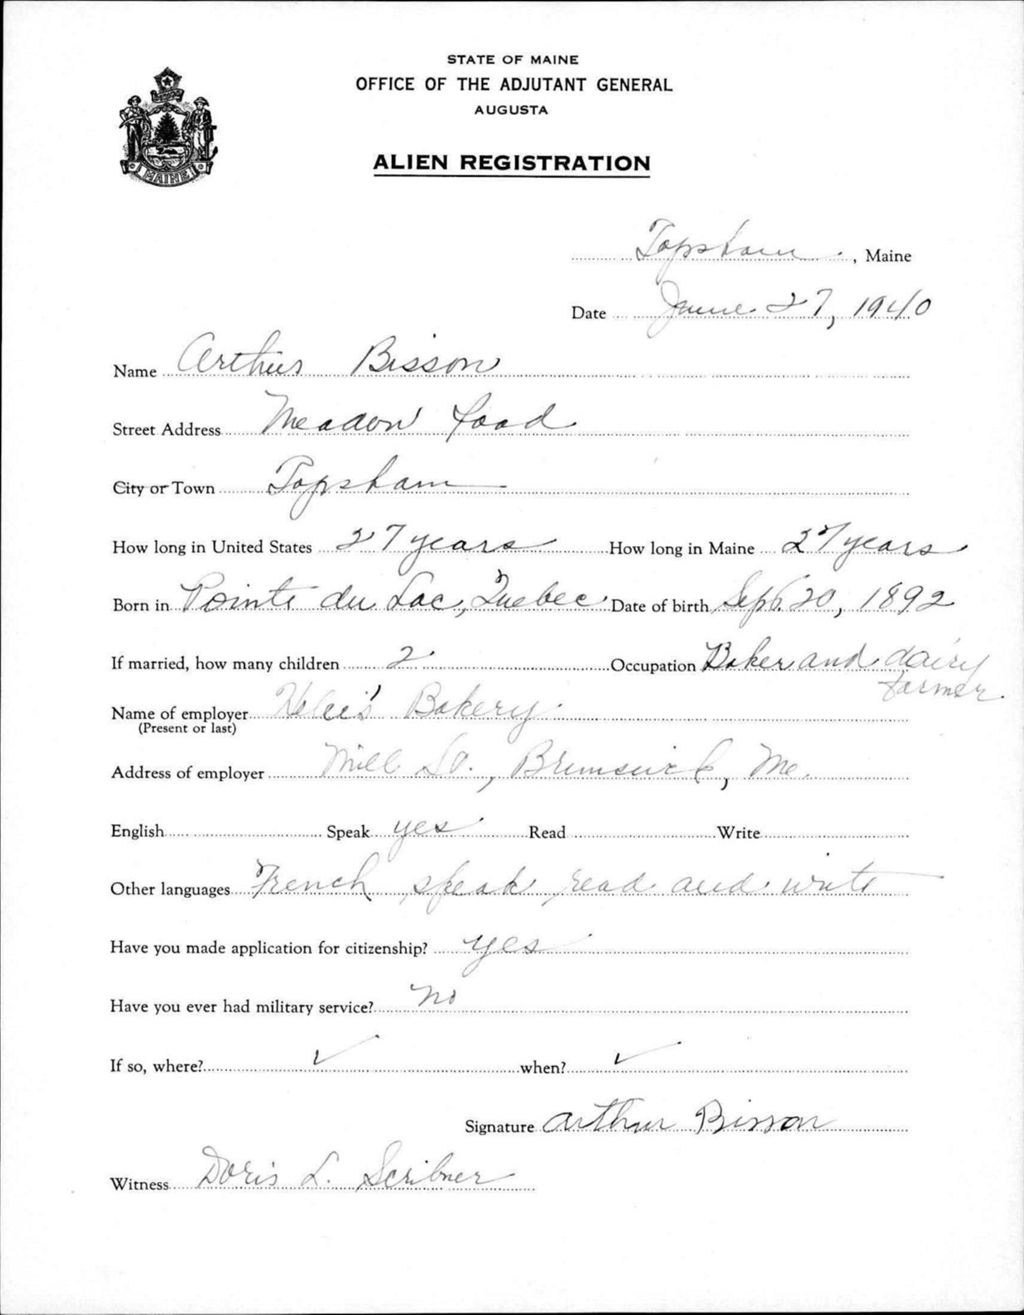 STATE OF MAINE
OFFICE OF THE ADJUTANT GENERAL
AUGUSTA
ALIEN REGISTRATION
MAINE
Topsham, Maine
Date June 27, 1940
Name Arthur Bisson
Street Address Meadow Road
City or Town Topsham
How long in United States 27 years How long in Maine 27 years
Born in Pointe du Lac, Quebec Date of birth Sept. 20, 1892
If married, how many children 2 Occupation Baker and dairy
farmer
Name of employer Bakery
(Present or last)
Address of employer Mill St., Brunswick, Me.
English Speak yes Read Write
Other languages French speak read and write
Have you made application for citizenship? yes
Have you ever had military service? no
If so, where? ✓ when? ✓
Signature Arthur Bisson
Witness Doris L. Scribner